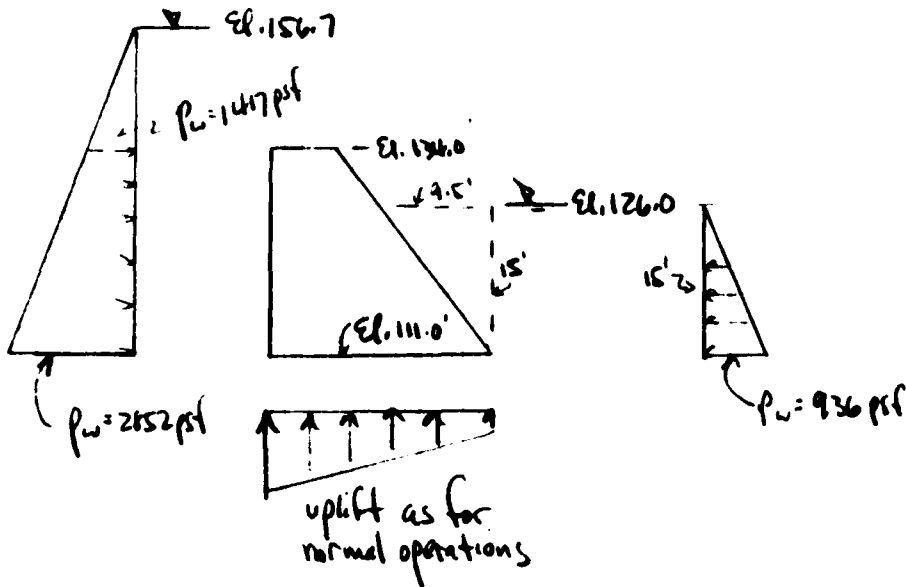 El.156.7
Pw=1417psf
El.134.0
9.5'
El.126.0
15'
15'
El.111.0'
Pw=2852psf
Pw=936psf
uplift as for
normal operations